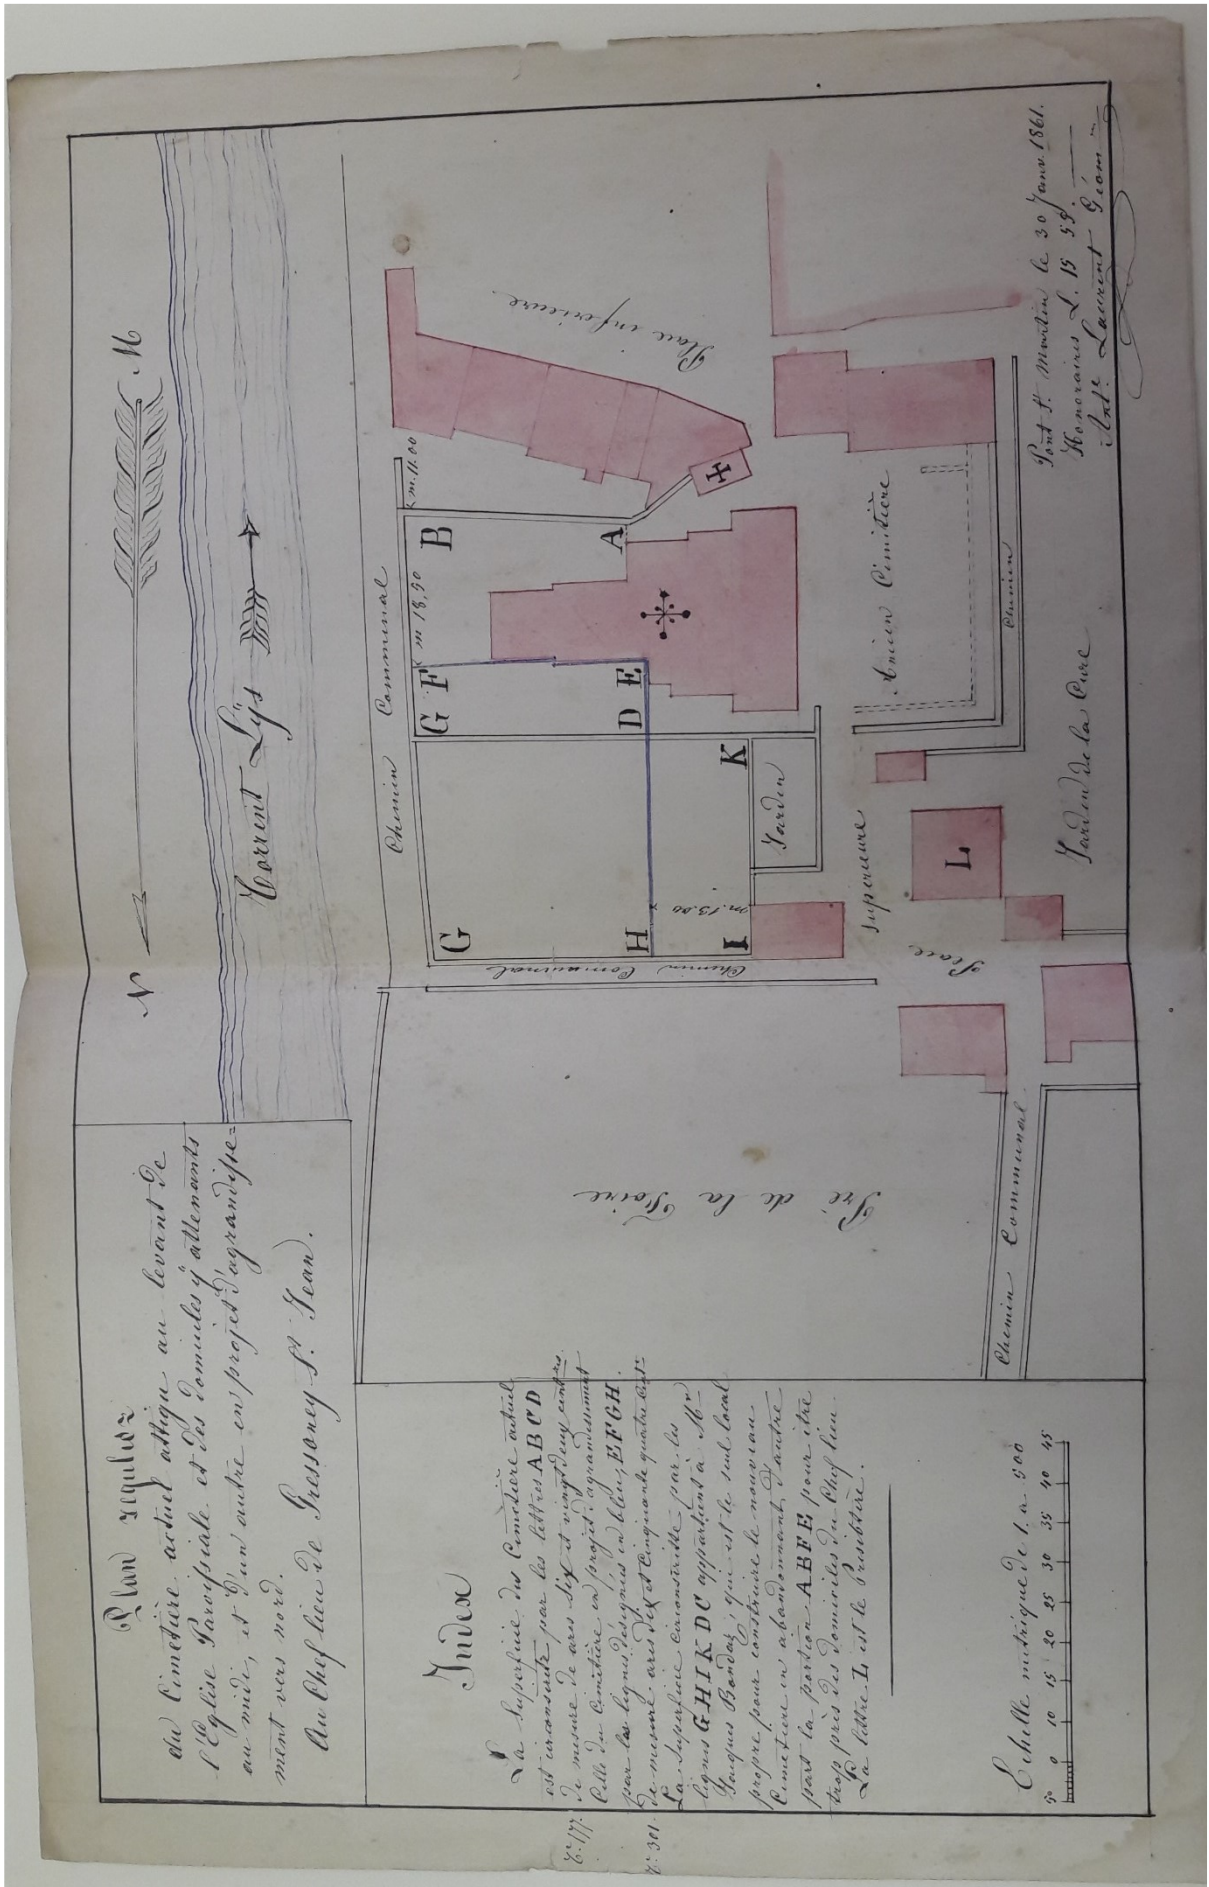 Plan régulier
du Cimetière actuel attigu au levant de
l'Eglise Paroissiale et des domiciles y attenants
au midi, et d'un autre en projet d'agrandisse=
ment vers nord.
Au Chef lieu de Gressoney S.t Jean.
N
M
Torrent Lÿs
Index
La Superficie du Cimetière actuel
est circonscrite par les lettres ABCD
de mesure de ares six et vingt deux cent.res
Celle du Cimetière en projet d'agrandissement
par les lignes désignées en bleu, EFGH.
de mesure ares dix et cinquante quatre cent.res
La Superficie circonscritte par les
lignes GHIKDC appartient à M.r
Jacques Bondaz, qui est le seul local
propre pour construire le nouveau
Cimetiere en abandonnant d'autre
part la portion ABFE pour être
trop près des domiciles du Chef lieu.
La lettre L est le Presbitère.
T.s 177.
T.s 301.
Echelle métrique de 1 a 500
0 10 15 20 25 30 35 40 45
Chemin Communal
G
G F
m 18,90
B
m. 11.00
H
D E
A
I
K
m. 13.00
Jardin
Chemin Communal
Place inferieure
Pré de la Foire
Place
superieure
L
Ancien Cimitière
Chemin
Jardin de la Cure
Chemin Communal
Pont S.t Martin le 30 Janv. 1861.
Honoraires L. 15 55.
Ant.e Laurent Géom.